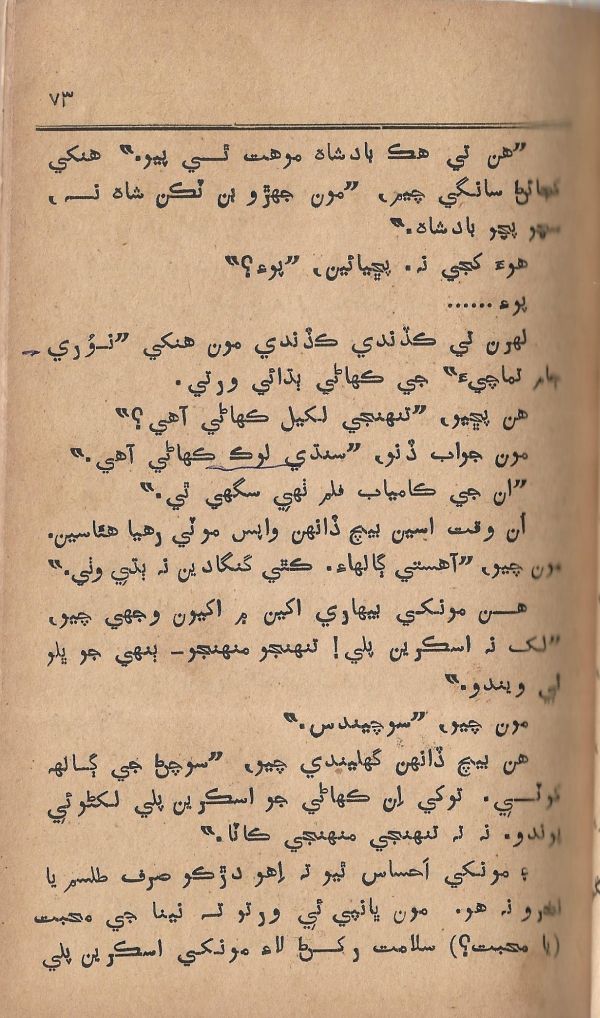 ۷۳
”هن تي هڪ بادشاهه موهت ٿي پيو.“ هنکي
کڄائڻ سانگي چيم، ”مون جهڙو بن ٽڪن شاهه نہ،
سچو پچو بادشاهه.“
هوءَ کڄي نہ. پڇيائين، ”پوءِ؟“
پوءِ......
لهرن تي ڪڏندي ڪڏندي مون هنکي ”نوُري
ڄام تماچيءَ“ جي ڪهاڻي ٻڌائي ورتي.
هن پڇيو، ”تنهنجي لکيل ڪهاڻي آهي؟“
مون جواب ڏنو، ”سنڌي لوڪ ڪهاڻي آهي.“
”ان جي ڪامياب فلم ٺهي سگهي ٿي.“
اُن وقت اسين بيچ ڏانهن واپس موٽي رهيا هئاسين.
مون چيو، ”آهستي ڳالهاءِ. ڪٿي گنگادين نہ ٻڌي وٺي.“
هن مونکي بيهاري اکين ۾ اکيون وجهي چيو،
”لک نہ اسڪرين پلي! تنهنجو منهنجو – ٻنهي جو ڀلو
ٿي ويندو.“
مون چيو، ”سوچيندس.“
هن بيچ ڏانهن گهليندي چيو، ”سوچڻ جي ڳالهہ
ڪونهي. توکي اِن ڪهاڻي جو اسڪرين پلي لکڻو ئي
پوندو. نہ تہ تنهنجي منهنجي ڪاٽا.“
۽ مونکي اَحساس ٿيو تہ اِهو دڙڪو صرف طلسم يا
نہ هو. مون ڀانپي ئي ورتو تہ نينا جي محبت
(يا محبت؟) سلامت رکڻ لاءِ مونکي اسڪرين پلي